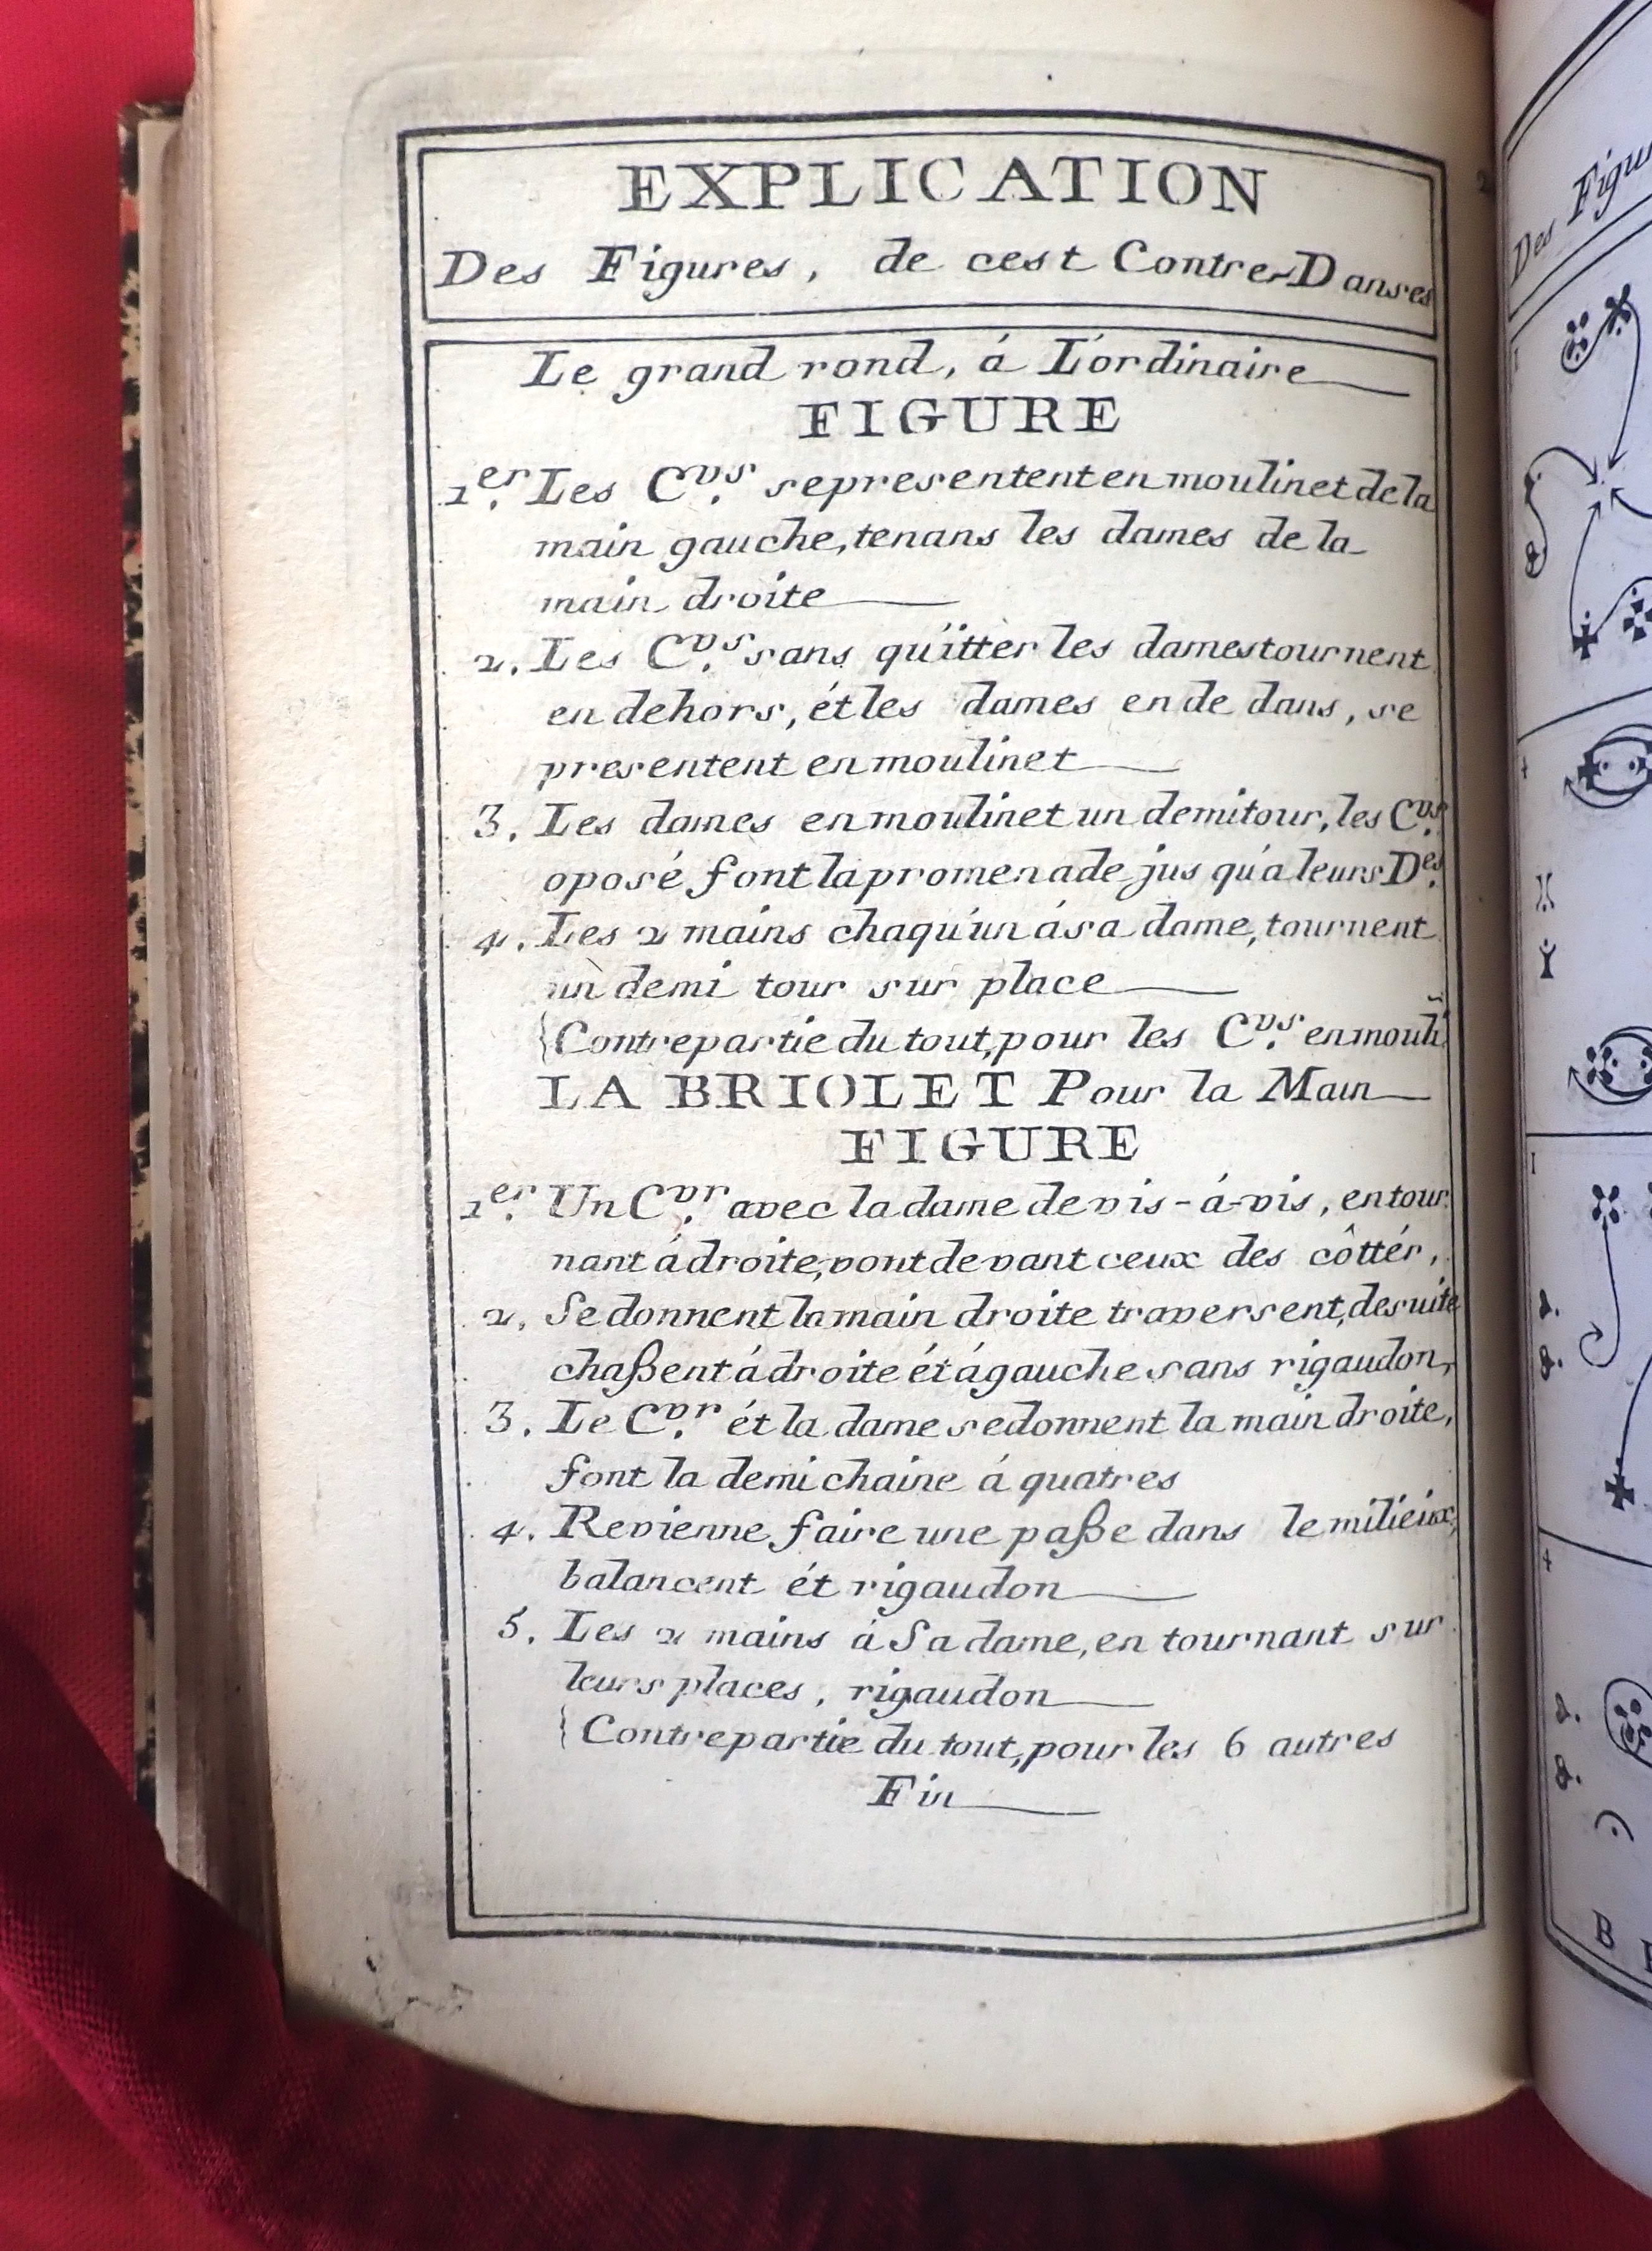 EXPLICATION
Des Figures, de cest Contre-Danses
Le grand rond, á L'ordinaire
FIGURE
1.er Les C.vs se presentent en moulinet de la
main gauche, tenans les dames de la
main droite
2. Les C.vs sans quitter les dames tournent
en dehors, ét les dames en de dans, se
presentent en moulinet
3. Les dames en moulinet un demi tour, les C.vs
oposé font la promenade jus qu'a leurs D.es
4. Les 2 mains chaqu'un á sa dame, tournent
un demi tour sur place
{Contrepartie du tout, pour les C.vs en mouli
LA BRIOLET Pour la Main
FIGURE
1.er Un C.vr avec la dame de vis-á-vis, en tour
nant á droite, vont devant ceux des côttés,
2. Se donnent la main droite traversent, de suite
chaßent á droite ét á gauche sans rigaudon,
3. Le C.vr ét la dame se donnent la main droite,
font la demi chaine á quatres
4. Revienne faire une paße dans le milieux,
balancent ét rigaudon
5. Les 2 mains á Sa dame, en tournant sur
leurs places, rigaudon
{Contrepartie du tout, pour les 6 autres
Fin
Des Figu
1
4
1
4
B